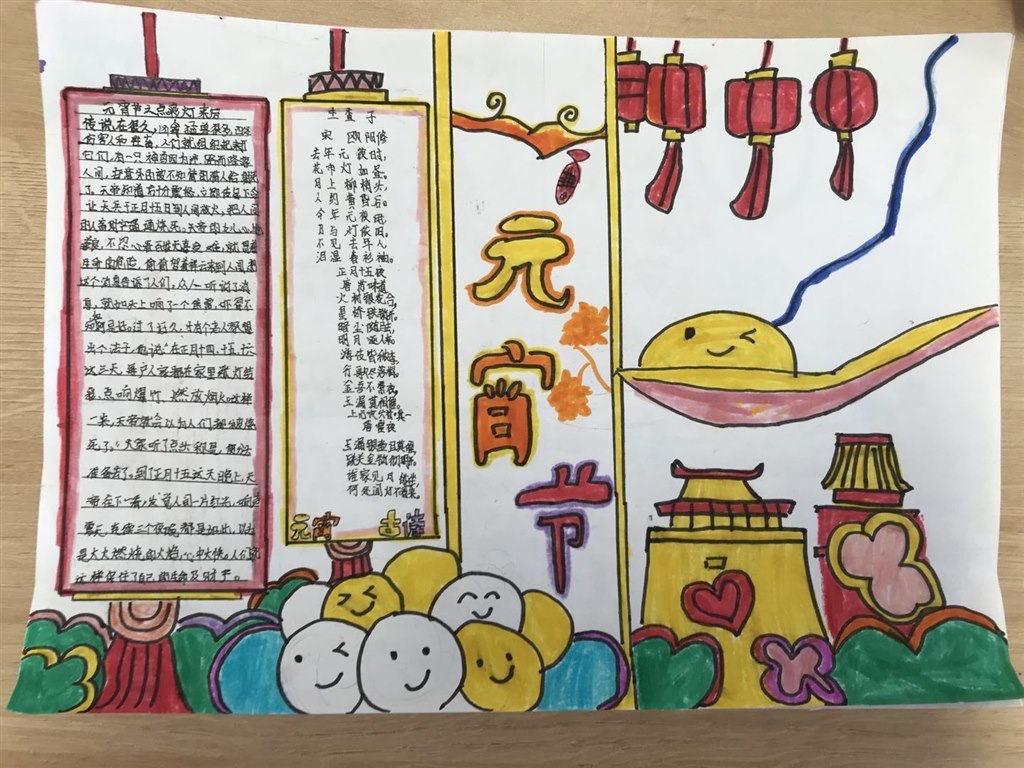 元宵节之点彩灯来历
传说在很久，凶禽猛兽很多，四处
伤害人和牲畜，人们就组织起来打
它们，有一只神鸟因为迷路而降落
人间，却意外的被不知情的猎人给射死
了。天帝知道后十分震怒，立即传旨下令
让天兵于正月十五日到人间放火，把人间
的人畜财产通通烧死。天帝的女儿心地
善良，不忍心看百姓无辜受难，就冒着
生命的危险，偷偷驾着祥云来到人间，把
这个消息告诉了人们，众人听说了消
息，就如头上响了一个焦雷，吓得不
知如何是好。过了好久，才有个老人家想
出个法子，他说“在正月十四、十五、十六
这三天，每户人家都在家里张灯结
彩、点响爆竹、燃放烟火。这样
一来，天帝就会以为人们都被烧
死了。”大家听了点头称是，便分头
准备去了。到了正月十五这天晚上，天
帝往下一看，发觉人间一片红光，响声
震天，连续三个夜晚都是如此，以为
是大火燃烧的火焰，心中大快。人们就
这样保住了自己的生命及财产。
生查子
宋 欧阳修
去年元夜时，
花市灯如昼。
月上柳梢头，
人约黄昏后。
今年元夜时，
月与灯依旧。
不见去年人，
泪湿春衫袖。
正月十五夜
唐 苏味道
火树银花合，
星桥铁锁开。
暗尘随马去，
明月逐人来。
游伎皆秾李，
行歌尽落梅。
金吾不禁夜，
玉漏莫相催。
上元夜六首·其一
唐 崔液
玉漏银壶且莫催，
铁关金锁彻明开。
谁家见月能闲坐，
何处闻灯不看来。
元宵 古诗
元
宵
节